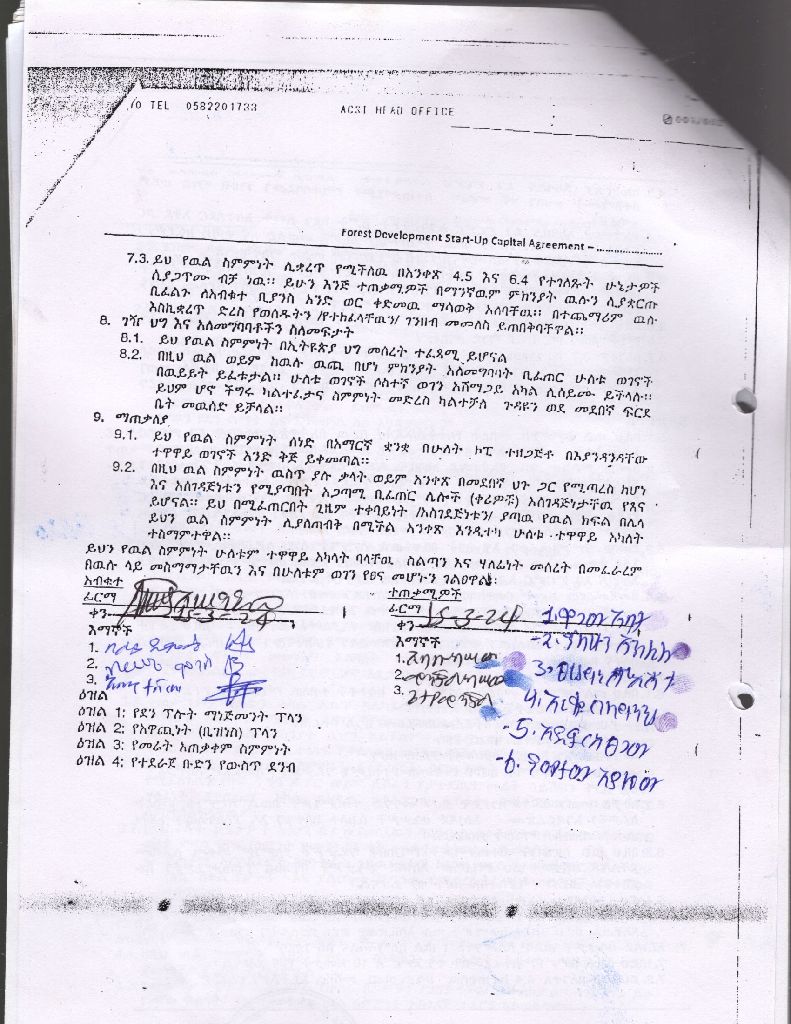 /0 TEL 0582201733 ACSI HEAD OFFICE
Forest Development Start-Up Capital Agreement – ......................
7.3. ይህ የዉል ስምምነት ሊቋረጥ የሚችለዉ በአንቀጽ 4.5 እና 6.4 የተገለጹት ሁኔታዎች
ሲያጋጥሙ ብቻ ነዉ። ይሁን እንጅ ተጠቃሚዎች በማንኛዉም ምክንያት ዉሉን ሊያቋርጡ
ቢፈልጉ ለአብቁተ ቢያንስ አንድ ወር ቀድመዉ ማሳወቅ አለባቸዉ። በተጨማሪም ዉሉ
እስኪቋረጥ ድረስ የወሰዱትን /የተከፈላቸዉን/ ገንዘብ መመለስ ይጠበቅባቸዋል።
8. ገዥ ህግ እና አለመግባባቶችን ስለመፍታት
8.1. ይህ የዉል ስምምነት በኢትዩጵያ ህግ መሰረት ተፈጻሚ ይሆናል
8.2. በዚህ ዉል ወይም ከዉሉ ዉጪ በሆነ ምክንያት አለመግባባት ቢፈጠር ሁለቱ ወገኖች
በዉይይት ይፈቱታል። ሁለቱ ወገኖች ሶስተኛ ወገን አሸማጋይ አካል ሊሰይሙ ይችላሉ።
ይህም ሆኖ ችግሩ ካልተፈታና ስምምነት መድረስ ካልተቻለ ጉዳዩን ወደ መደበኛ ፍርድ
ቤት መዉሰድ ይቻላል።
9. ማጠቃለያ
9.1. ይህ የዉል ስምምነት ሰነድ በአማርኛ ቋንቋ በሁለት ኮፒ ተዘጋጅቶ በእያንዳንዳቸው
ተዋዋይ ወገኖች እንድ ቅጅ ይቀመጣል።
9.2. በዚህ ዉል ስምምነት ዉስጥ ያሉ ቃላት ወይም አንቀጽ በመደበኛ ህጉ ጋር የሚጣረስ ከሆነ
እና አስገዳጅነቱን የሚያጣበት አጋጣሚ ቢፈጠር ሌሎች (ቀሪዎቹ) አስገዳጅነታቸዉ የፀና
ይሆናል። ይህ በሚፈጠርበት ጊዜም ተቀባይነት /አስገደጅነቱን/ ያጣዉ የዉል ክፍል በሌላ
ይህን ዉል ስምምነት ሊያስጠብቅ በሚችል አንቀጽ እንዲተካ ሁለቱ ተዋዋይ አካለት
ተስማምተዋል።
ይህን የዉል ስምምነት ሁለቱም ተዋዋይ አካላት ባላቸዉ ስልጣን እና ሃለፊነት መሰረት በመፈራረም
በዉሉ ላይ መስማማታቸዉን እና በሁለቱም ወገን የፀና መሆኑን ገልፀዋል፤
አብቁተ ተጠቃሚዎች
ፊርማ ፊርማ 15-3-24
ቀን 15-3-24 ቀን
እማኞች እማኞች
1. 1.
2. 2.
3. 3.
ዕዝል
ዕዝል 1፤ የደን ፕሎት ማነጅመንት ፕላን
ዕዝል 2፤ የአዋጪነት (ቢዝነስ) ፕላን
ዕዝል 3፤ የመሬት አጠቃቀም ስምምነት
ዕዝል 4፤ የተደራጀ ቡድን የውስጥ ደንብ